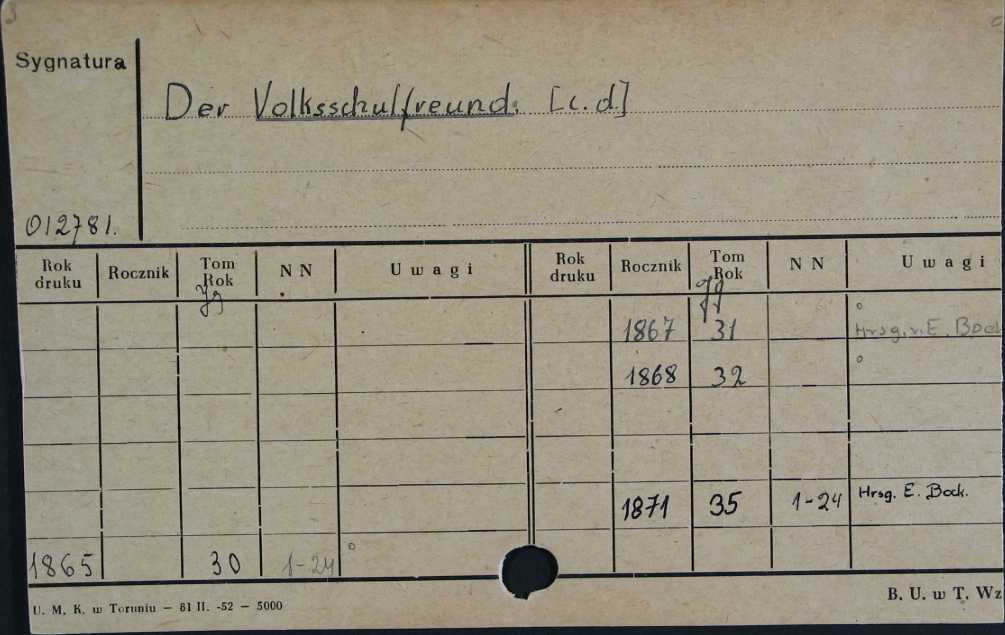 Sygnatura
Der Volksschulfreund. [c.d.]
012781.
Rok druku Rocznik Tom Rok NN Uwagi Rok druku Rocznik Tom Rok NN Uwagi
Jg Jg
1867 31 Hrsg. v. E. Bock
1868 32
1871 35 1-24 Hrsg. E. Bock.
1865 30 1-24
U. M. K. w Toruniu – 81 II. -52 – 5000
B. U. w T. Wz